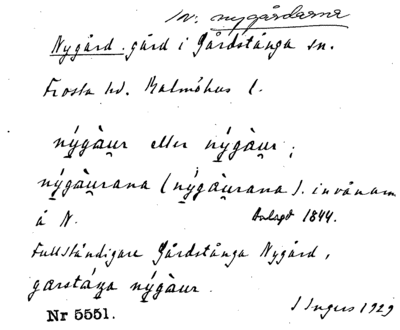 nygårdarna
Nygård. gård i Gårdstånga sn.
Frosta hd. Malmöhus l.
nýgàu̯r eller nýgàu̯r;
nýgàu̯rana (nýgàu̯rana). invånarn
å N. Anlagd 1844.
Fullständigare Gårdstånga Nygård,
gœrstáŋa nýgàu̯r.
Nr 5551. Ingers 1929